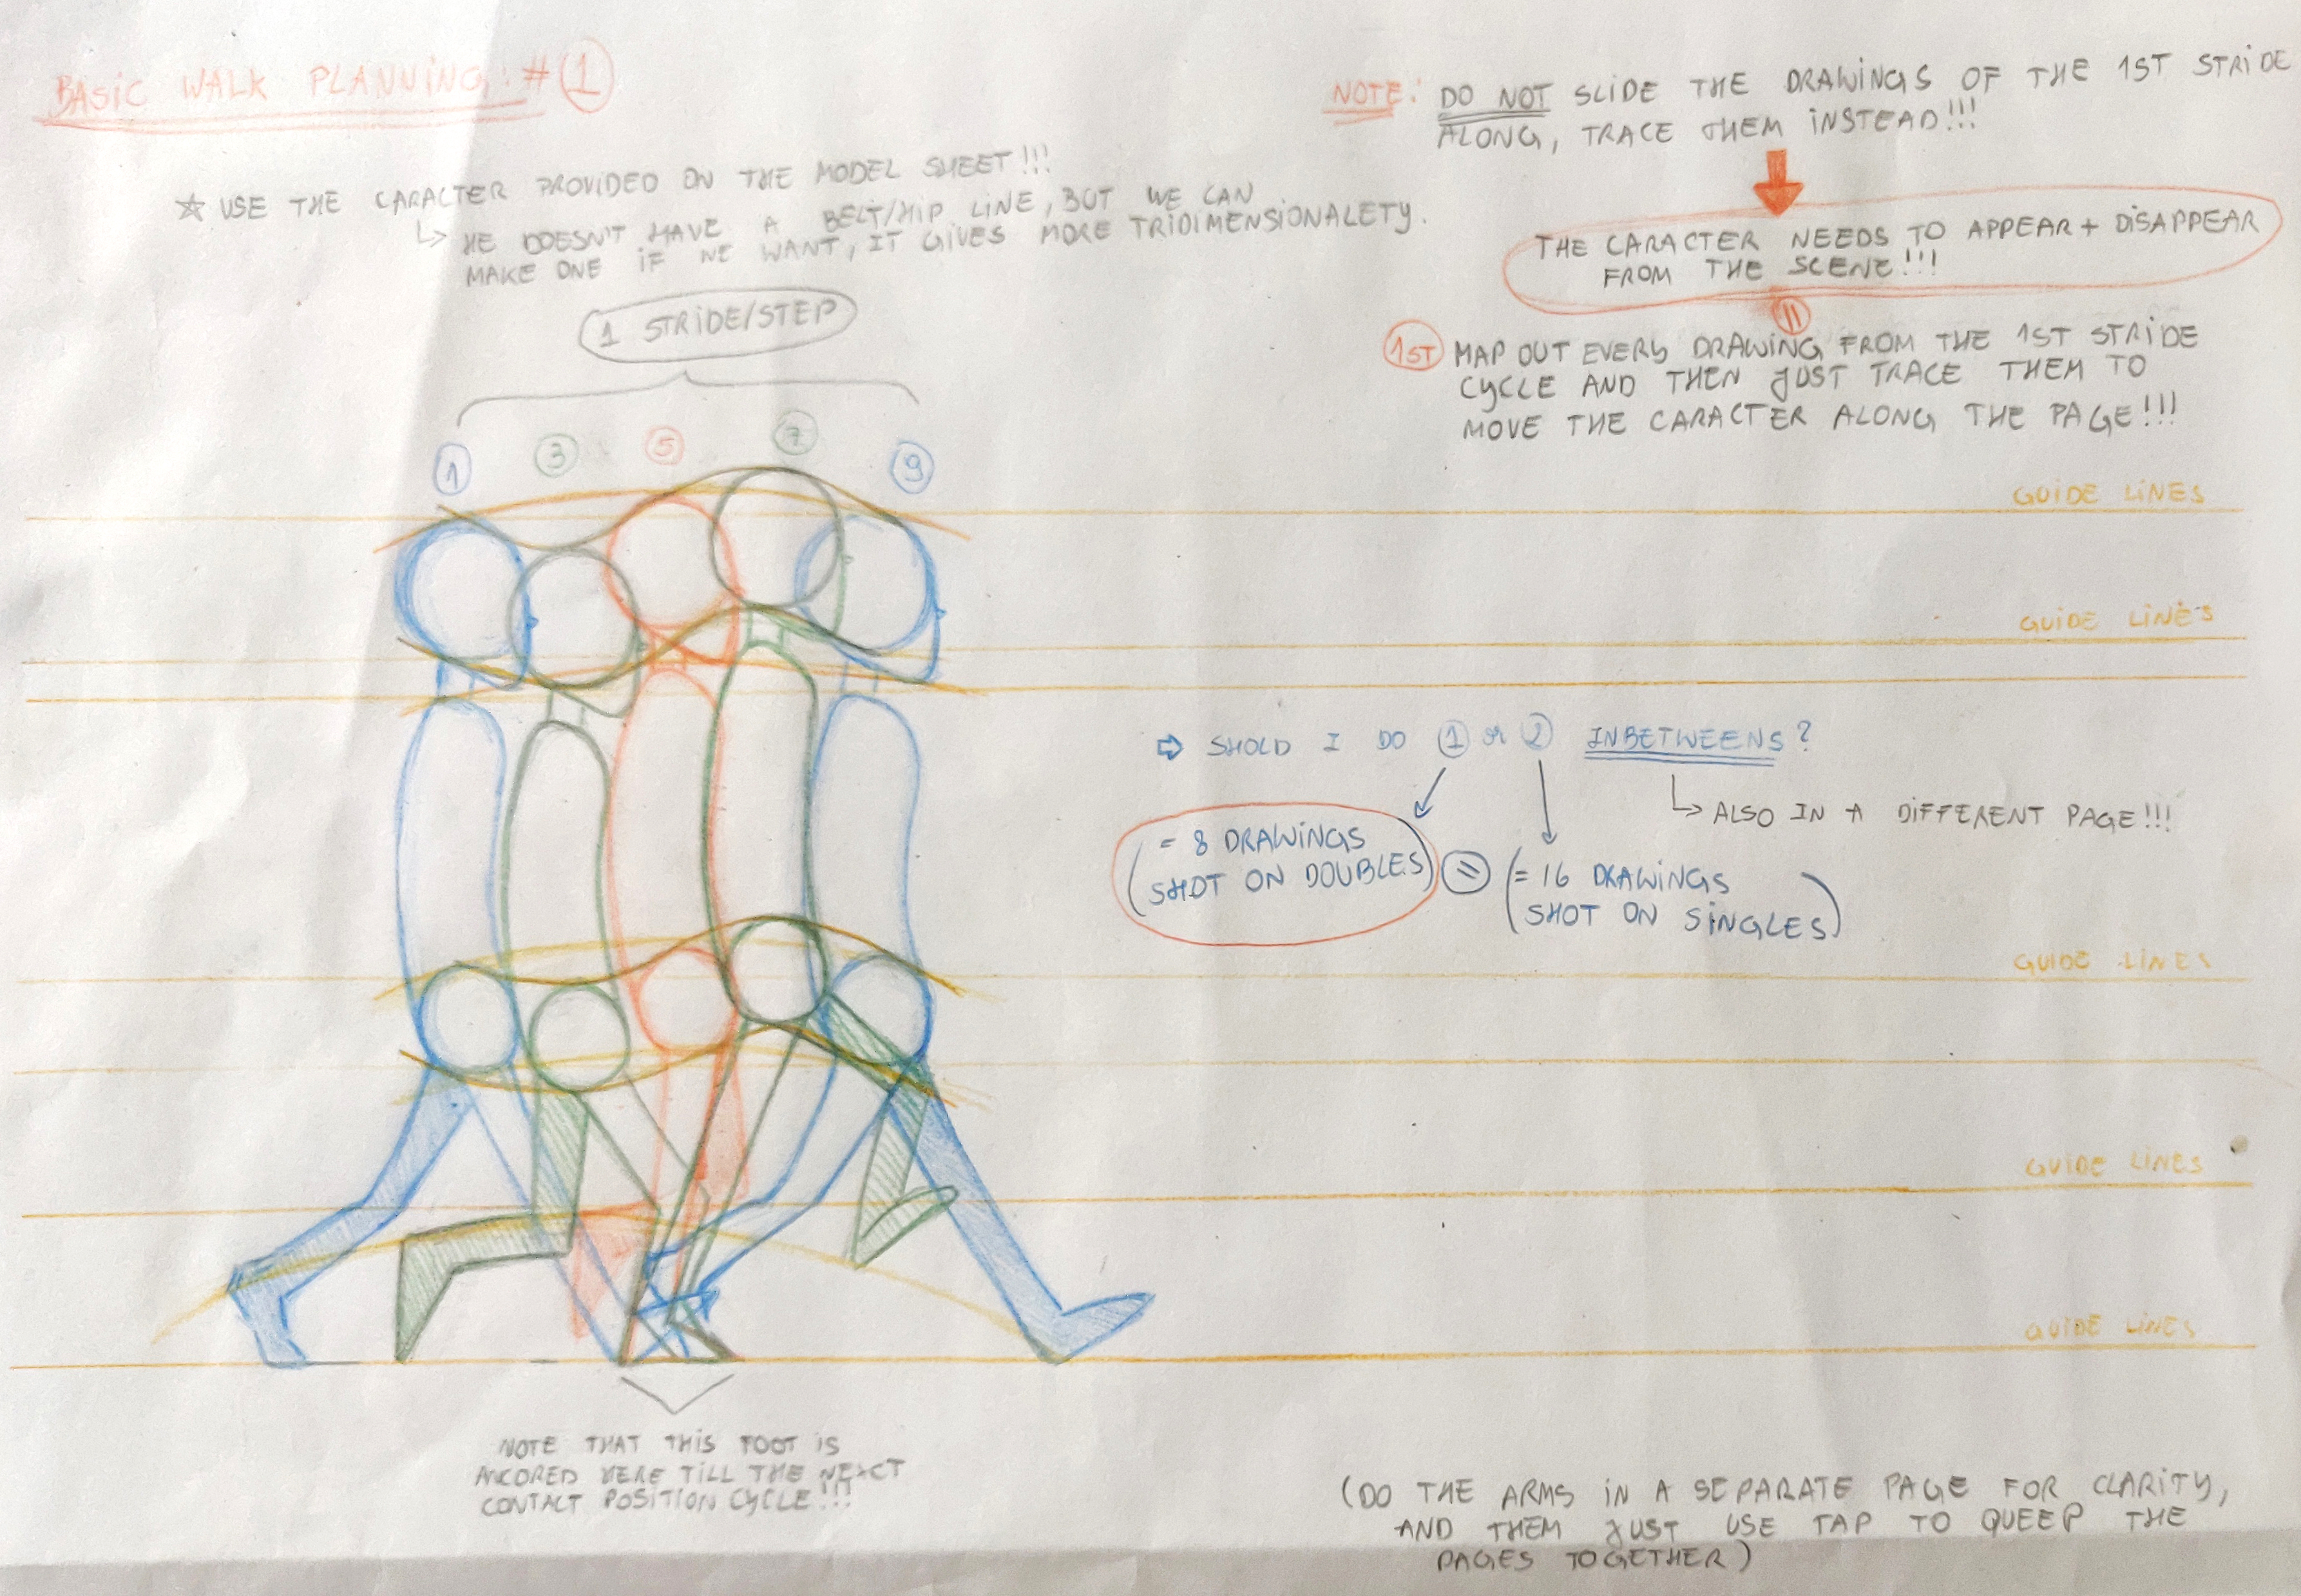 BASIC WALK PLANNING: # 1
☆ USE THE CARACTER PROVIDED ON THE MODEL SHEET!!!
↳ HE DOESN'T HAVE A BELT/HIP LINE, BUT WE CAN
MAKE ONE IF WE WANT, IT GIVES MORE TRIDIMENSIONALETY.
1 STRIDE/STEP
1 3 5 7 9
NOTE: DO NOT SLIDE THE DRAWINGS OF THE 1ST STRIDE
ALONG, TRACE THEM INSTEAD!!!
THE CARACTER NEEDS TO APPEAR + DISAPPEAR
FROM THE SCENE!!!
=
1ST MAP OUT EVERY DRAWING FROM THE 1ST STRIDE
CYCLE AND THEN JUST TRACE THEM TO
MOVE THE CARACTER ALONG THE PAGE!!!
GUIDE LINES
GUIDE LINES
⇨ SHOLD I DO 1 or 2 INBETWEENS?
↳ ALSO IN A DIFFERENT PAGE!!!
(= 8 DRAWINGS
SHOT ON DOUBLES)
=
(= 16 DRAWINGS
SHOT ON SINGLES)
GUIDE LINES
GUIDE LINES
GUIDE LINES
NOTE THAT THIS FOOT IS
ANCORED HERE TILL THE NEXCT
CONTACT POSITION CYCLE!!!
(DO THE ARMS IN A SEPARATE PAGE FOR CLARITY,
AND THEM JUST USE TAP TO QUEEP THE
PAGES TOGETHER)